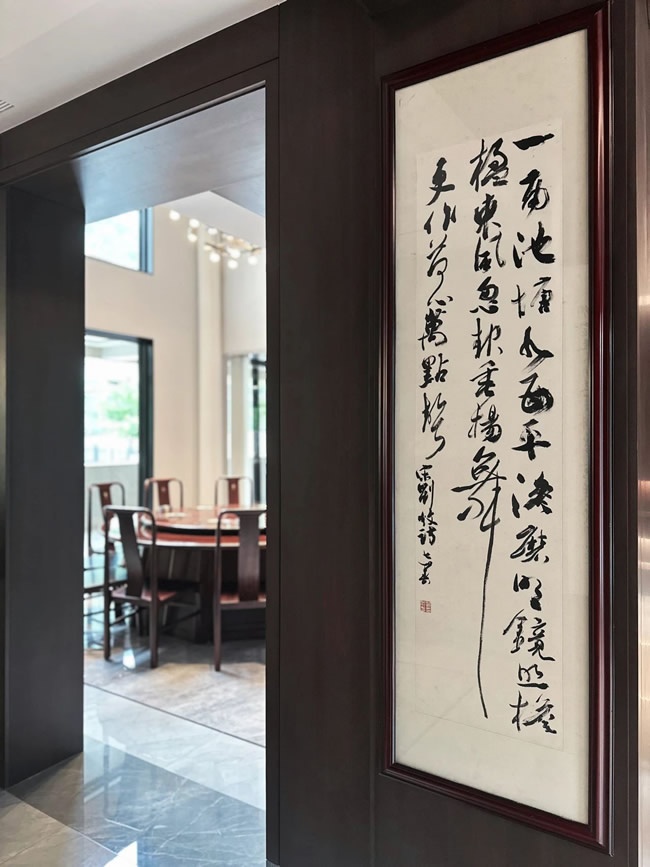 一雨池塘水面平淡磨明鏡照檐
楹東風忽起垂楊舞
更作荷心萬點聲
宋劉攽詩